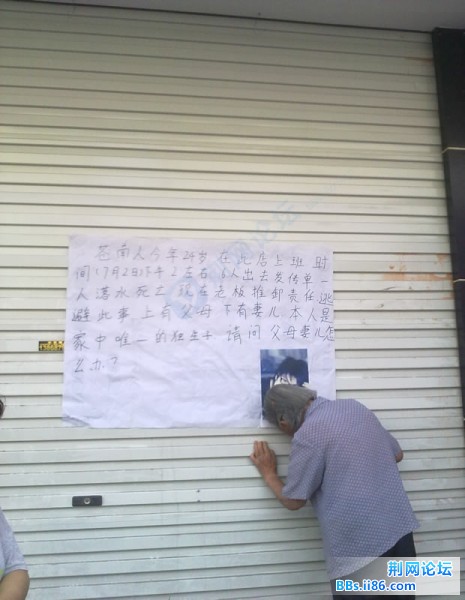 苍南人今年24岁在此店上班时
间17月2日13午2左右3人出去发传单一
人落水死亡现在老板推卸责任逃
避此事上有父母下有妻儿本人是
家中唯一的独生子请问父母妻儿怎
么办?
荆网论坛
BBs.ii86.com